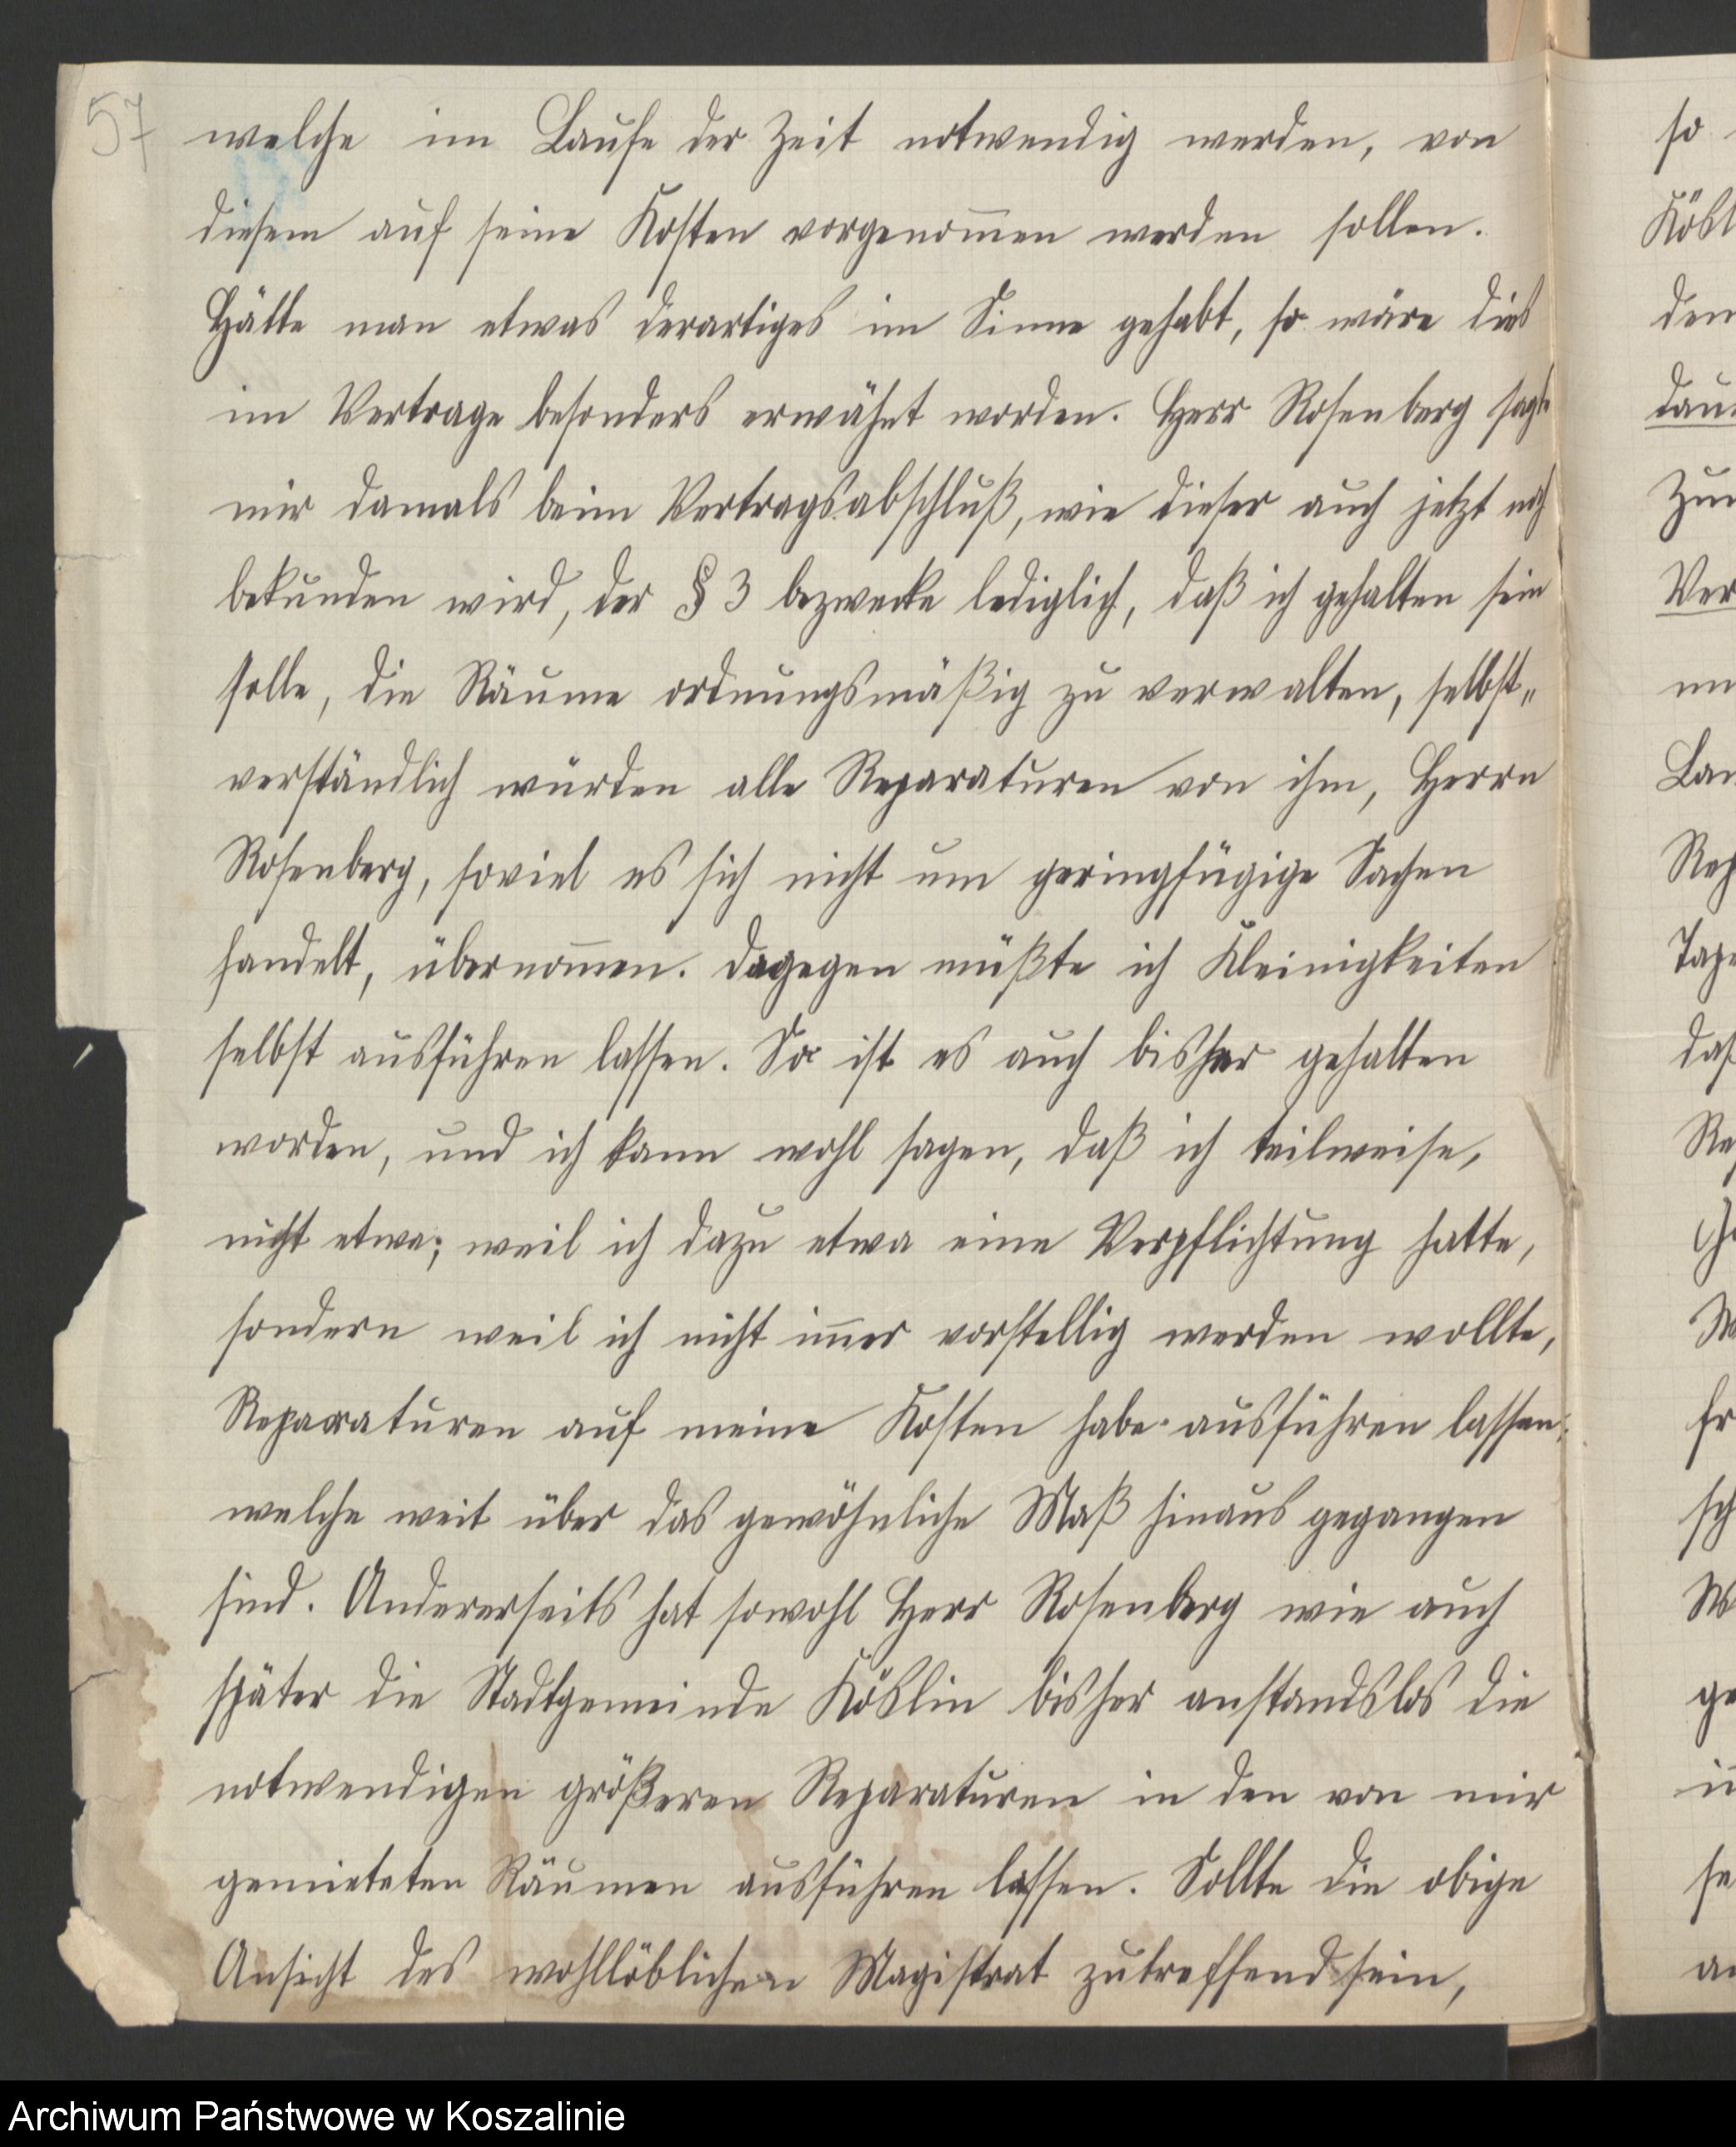 57
welche im Laufe der Zeit notwendig werden, von
diesem auf seine Kosten vorgenom̅en werden sollen.
Hätte man etwas derartiges im Sinne gehabt, so wäre dies
im Vertrage besonders erwähnt worden. Herr Rosenberg sagte
mir damals beim Vertragsabschluß, wie dieser auch jetzt noch
bekunden wird, der § 3 bezwecke lediglich, daß ich gehalten sein
solle, die Räume ordnungsmäßig zu verwalten, selbst„
verständlich würden alle Reparaturen von ihm, Herrn
Rosenberg, soviel es sich nicht um geringfügige Sachen
handelt, übernom̅en. Dagegen müßte ich Kleinigkeiten
selbst ausführen lassen. So ist es auch bisher gehalten
worden, und ich kann wohl sagen, daß ich teilweise,
nicht etwa; weil ich dazu etwa eine Verpflichtung hatte,
sondern weil ich nicht im̅er vorstellig werden wollte,
Reparaturen auf meine Kosten habe ausführen lassen,
welche weit über das gewöhnliche Maß hinaus gegangen
sind. Andererseits hat sowohl Herr Rosenberg wie auch
später die Stadtgemeinde Köslin bisher anstandslos die
notwendigen größeren Reparaturen in den von mir
gemieteten Räumen ausführen lassen. Sollte die obige
Ansicht des wohllöblichen Magistrat zutreffend sein,
so
den
Archiwum Państwowe w Koszalinie